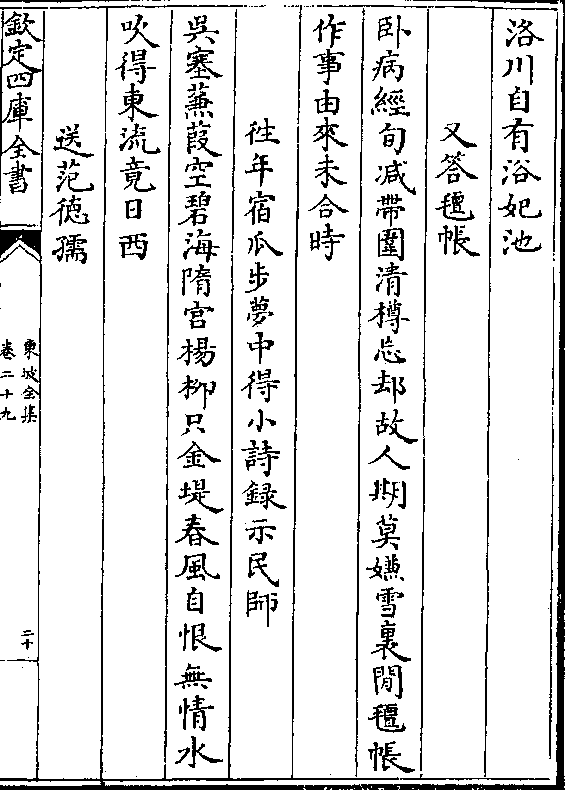 洛川自有浴妃池
又答氊帳
卧病經旬減帶圍清樽忘却故人期莫嫌雪裏閒氊帳
作事由來未合時
徃年宿瓜步夢中得小詩録示民師
吳塞蒹葭空碧海隋宫楊柳只金堤春風自恨無情水
吹得東流竟日西
送范德孺
欽定四庫全書
東坡全集
卷二十九
二十